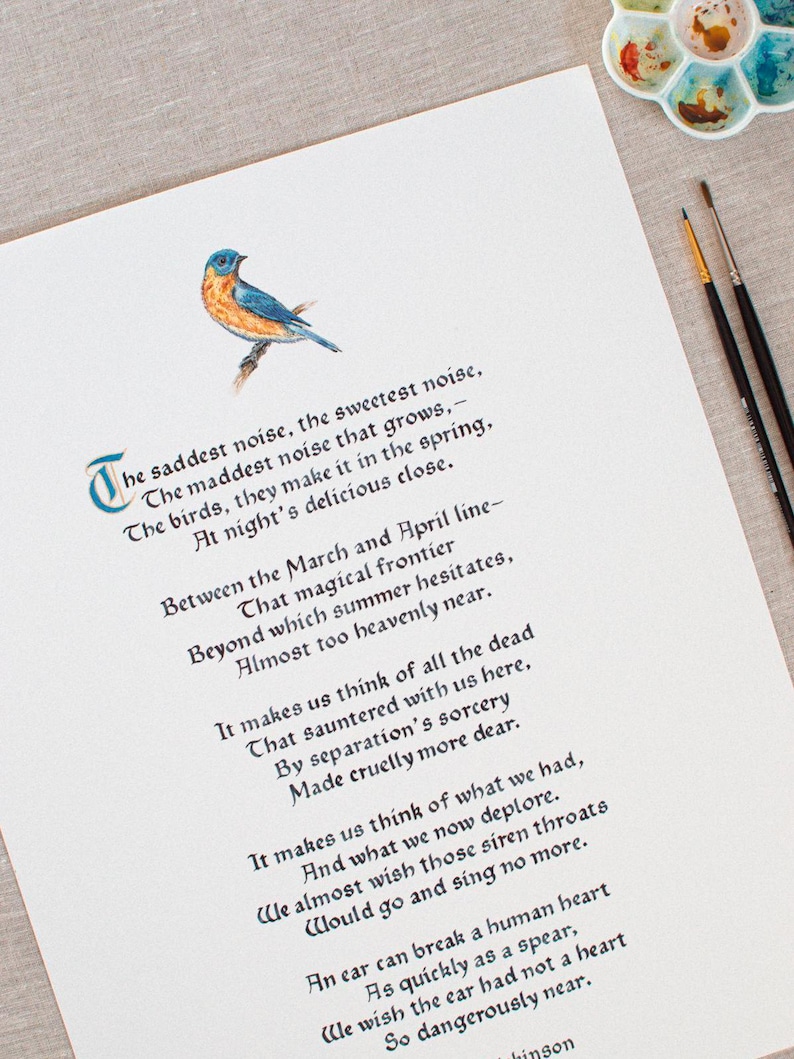 The saddest noise, the sweetest noise,
The maddest noise that grows,–
The birds, they make it in the spring,
At night's delicious close.
Between the March and April line–
That magical frontier
Beyond which summer hesitates,
Almost too heavenly near.
It makes us think of all the dead
That sauntered with us here,
By separation's sorcery
Made cruelly more dear.
It makes us think of what we had,
And what we now deplore.
We almost wish those siren throats
Would go and sing no more.
An ear can break a human heart
As quickly as a spear,
We wish the ear had not a heart
So dangerously near.